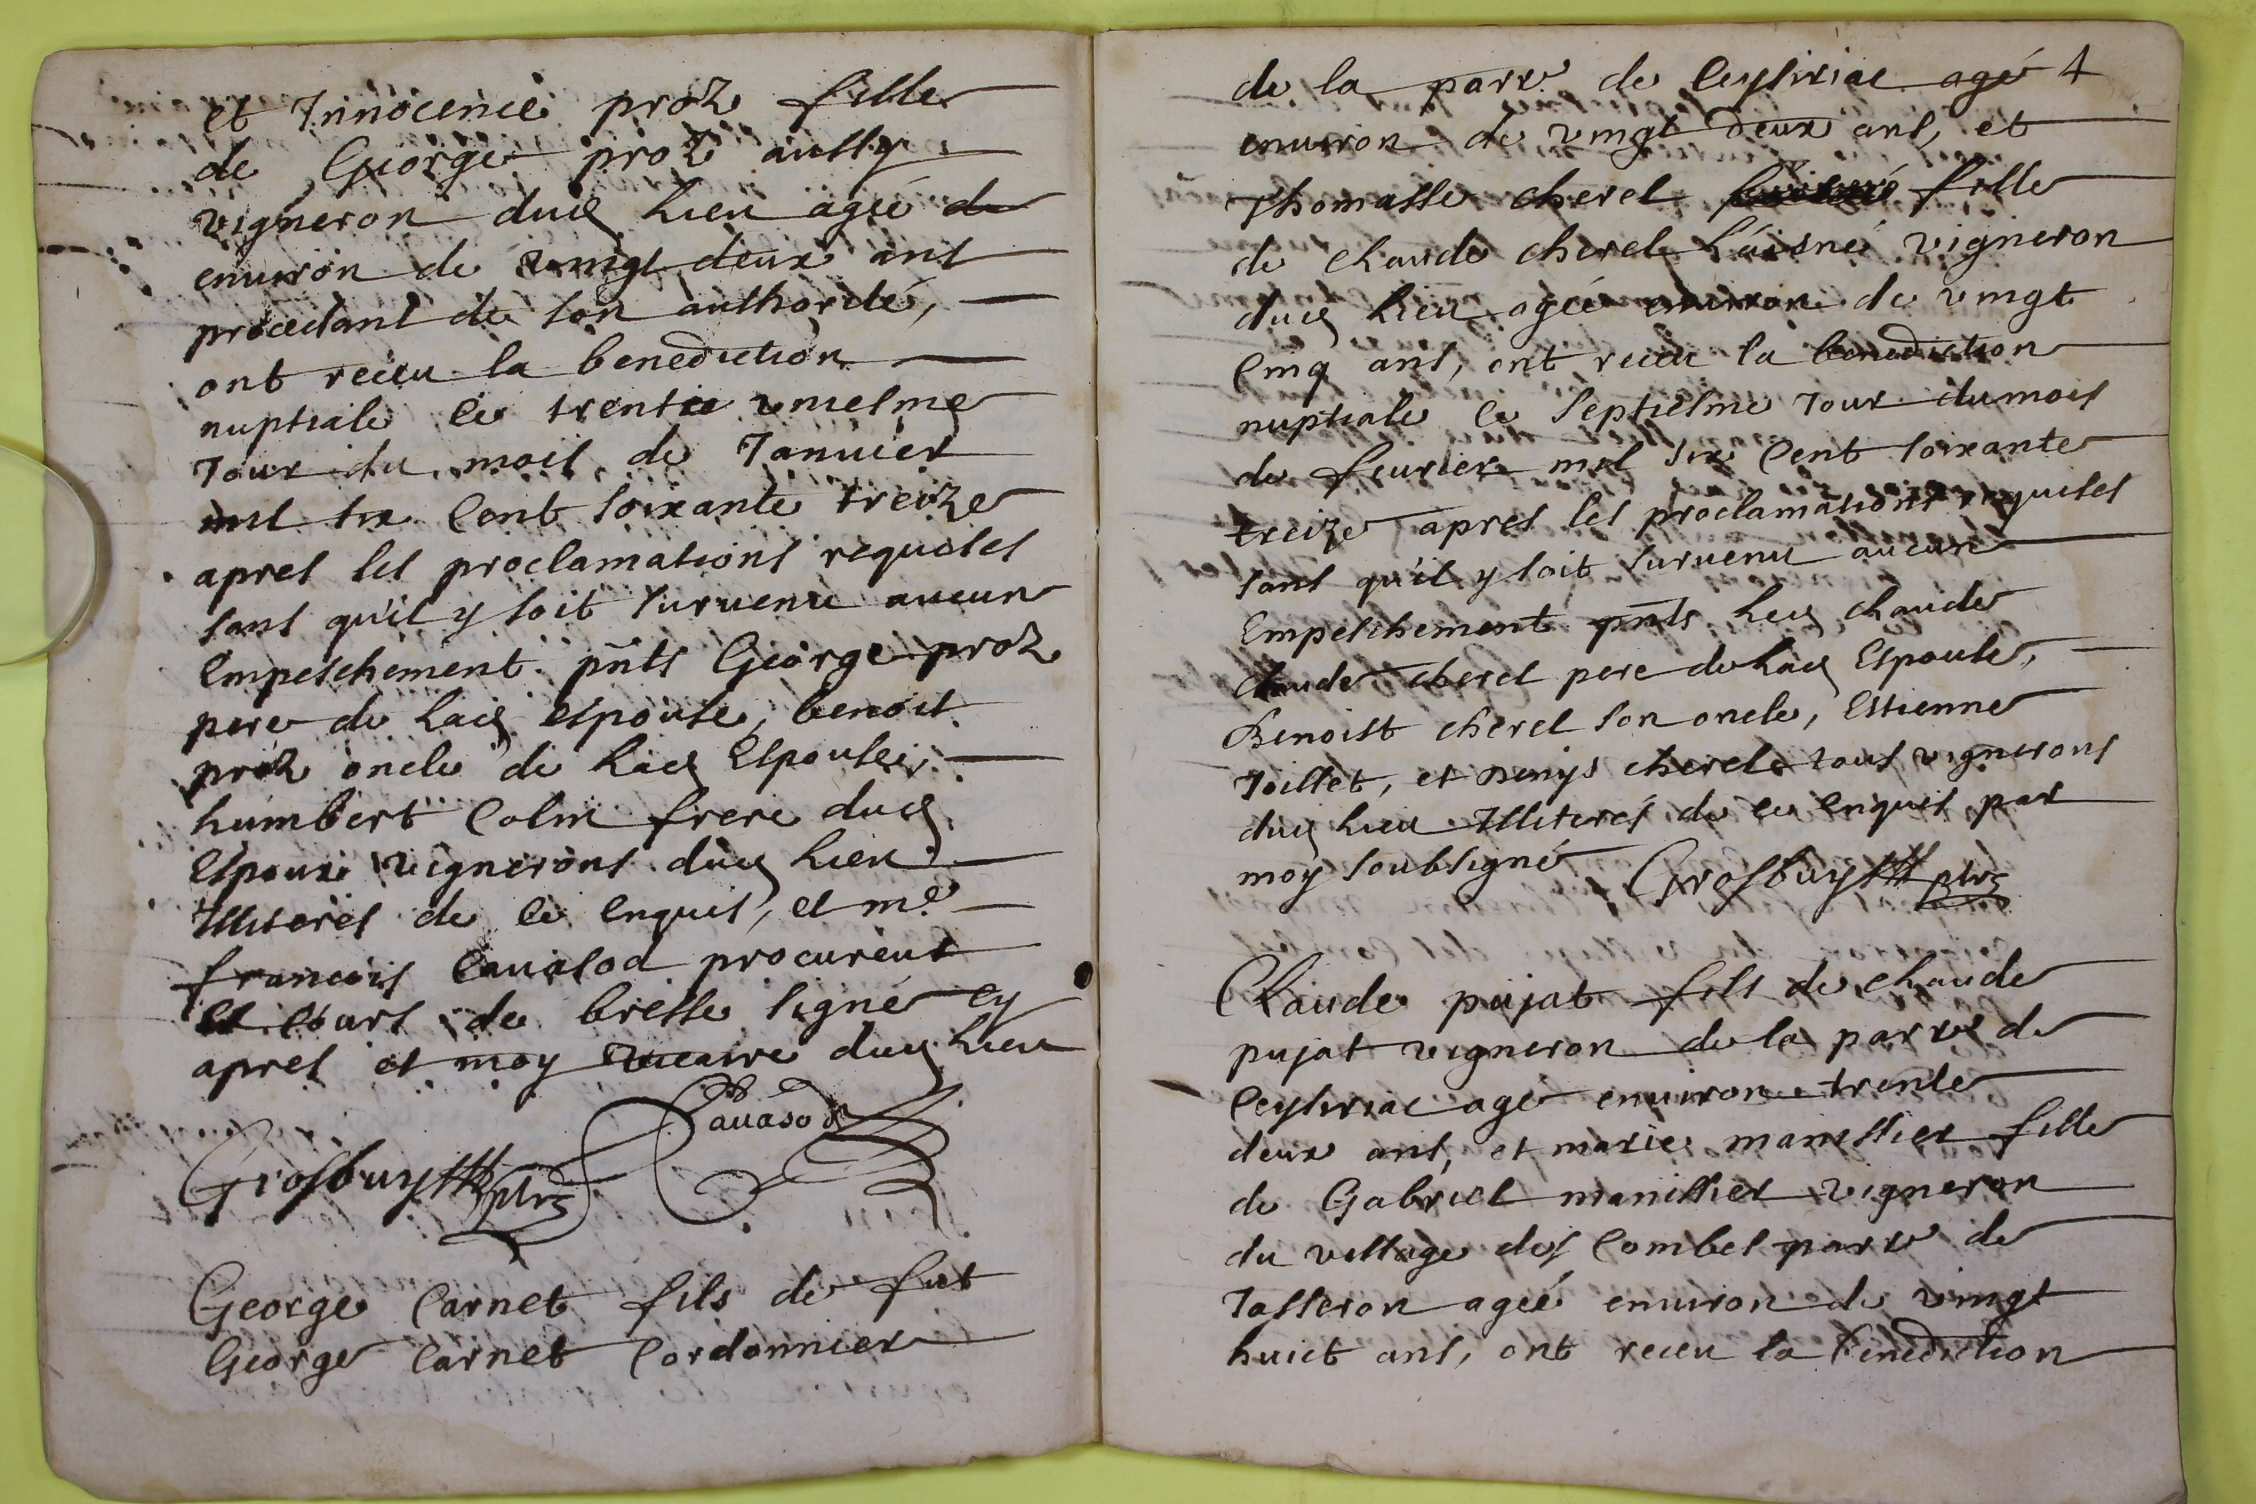 et Innocence proz fille
de George proz aussy
vigneron dud lieu agée de
environ de vingt deux ans
procedant de son authorité,
ont receu la benediction
nuptiale le trente uniesme
Jour du mois de Januier
mil six Cent soixante treize
apres les proclamations requises
sans qu'il y soit suruenu aucun
Empeschement pñts George proz
pere de lad espouse, benoit
proz oncle de lad Espouse,
humbert Colin frere dud
Espoux vignerons dud lieu
Illiteres de ce enquis, et me
francois Cauasod procureut
es cours de bresse signé cy
apres et moy vicaire dud lieu
Cauasod
Grosbuyss ptre
George Carnet fils de fut
George Carnet Cordonnier
de la parre de Ceysiriac agé 4
enuiron de vingt deux ans, et
Thomasse cherel fille
de Claude cherel L'aisné vigneron
dud lieu agée enuiron de vingt
Cinq ans, ont receu la benediction
nuptiale le septiesme Jour du mois
de feurier mil six Cent soixante
treize apres les proclamations requises
sans qu'il y soit suruenu aucun
Empeschement pñts led Claude
Claude cherel pere de lad Espouse,
Benoist cherel son oncle, Estienne
Joillet, et Denys cherel tous vignerons
dud lieu Illiterés de ce enquis par
moy soubsigné Grosbuyss ptre
Claude pujat fils de Claude
pujat vigneron de la parre de
Ceysiriac agé enuiron trente
deux ans, et marie manissier fille
de Gabriel manissier vigneron
du village des Combes parre de
Jasseron agée enuiron de vingt
huict ans, ont receu la benediction